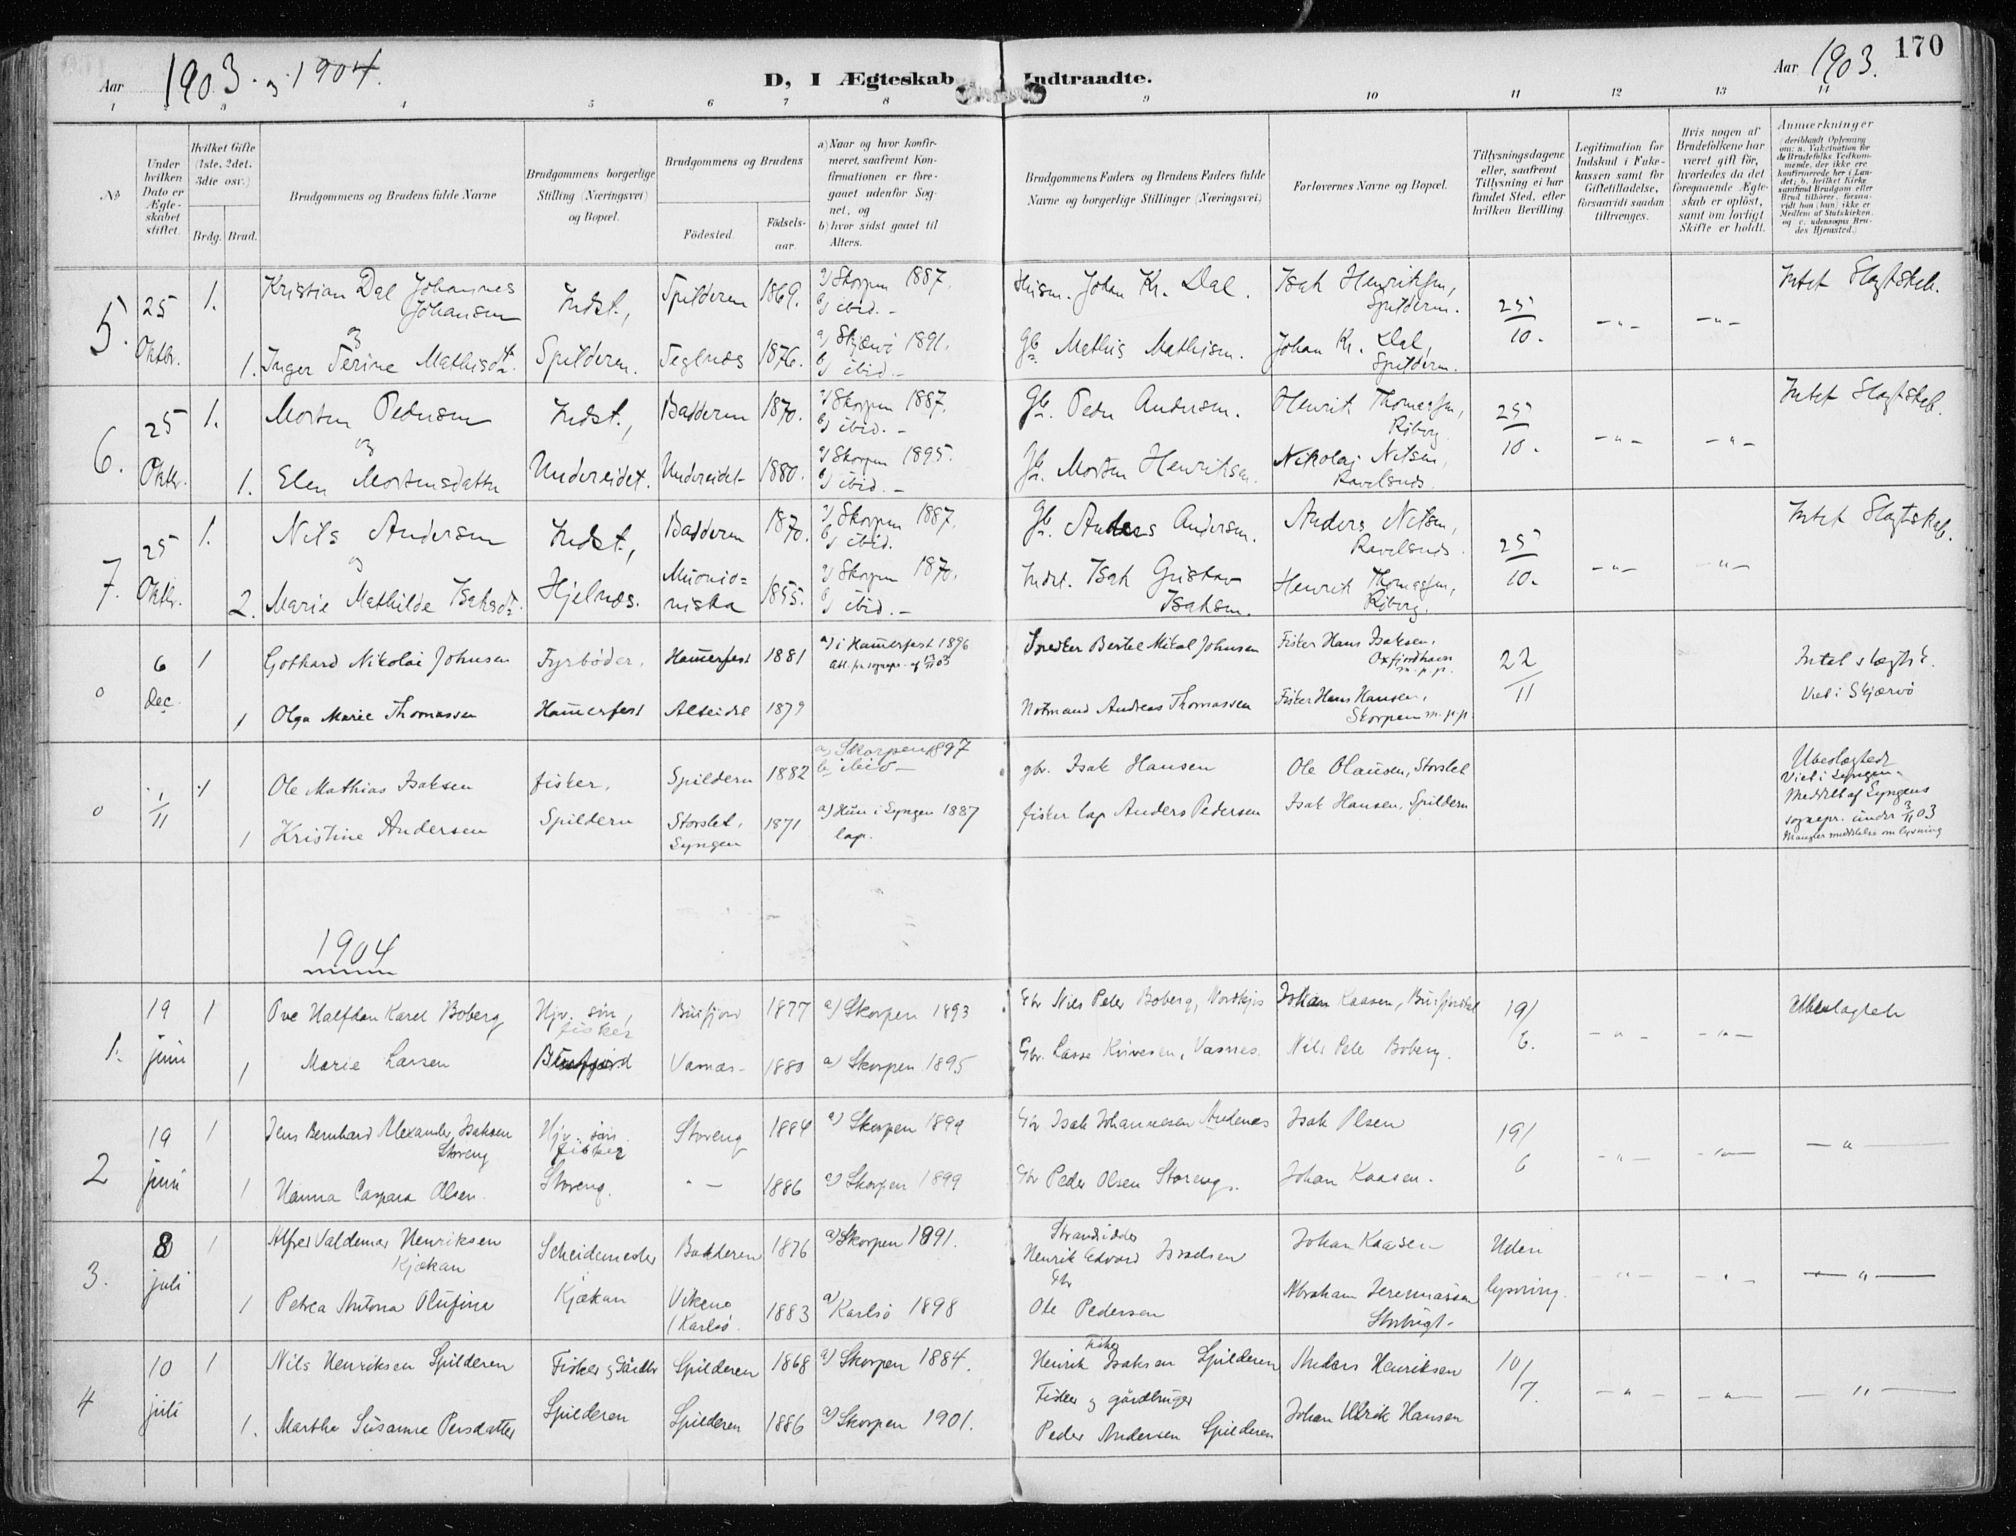 Aar 1903. og 1904.
D, I Ægteskab Indtraadte.
Aar 1903. 170
1 2 3 4 5 6 7 8 9 10 11 12 13 14
No
Under hvilken Dato er Ægteskabet stiftet.
Hvilket Gifte (1ste, 2det, 3die osv.)
Brdg. Brud.
Brudgommens og Brudens fulde Navne
Brudgommens borgerlige Stilling (Næringsvei) og Bopæl.
Brudgommens og Brudens
Fødested.
Fødselsaar.
a) Naar og hvor konfirmeret, saafremt Konfirmationen er foregaaet udenfor Sognet, og
b) hvor sidst gaaet til Alters.
Brudgommens Faders og Brudens Faders fulde Navne og borgerlige Stillinger (Næringsvei)
Forlovernes Navne og Bopæl.
Tillysningsdagene eller, saafremt Tillysning ei har fundet Sted, efter hvilken Bevilling.
Legitimation for Indskud i Enkekassen samt for Giftetilladelse, forsaavidt saadan tiltrænges.
Hvis nogen af Brudefolkene har været gift før, hvorledes da det foregaaende Ægteskab er opløst, samt om lovligt Skifte er holdt.
Anmerkninger
(deriblandt Oplysning om: a. Vakcination for de Brudefolks Vedkommende, der ikke ere konfirmerede her i Landet; b. hvilket Kirkesamfund Brudgom eller Brud tilhører, forsaavidt han (hun) ikke er Medlem af Statskirken, og c. udensogns Brudes Hjemsted.)
5. 25 Oktbr. 1. Kristian Dal Johannes Johansen Indst., Spilderen 1869. a) Skorpen 1887. b) ibid. - Johan Kr. Dal. Isak Henriksen, Spilderen. 25/10. - " - - " - Intet Slagtskab.
og
1. Inger Serine Mathisdt. Spilderen. Teglnæs 1876. a) Skjærvø 1891. b) ibid. - Gb. Mathis Mathisen. Johan Kr. Dal, Spilderen.
6. 25 Oktbr. 1. Morten Pedersen Indst., Badderen 1870. a) Skorpen 1887. b) ibid. - Gb. Peder Andersen. Henrik Thomassen, 25/10. - " - - " - Intet Slagtskab.
og
1. Elen Mortensdatter Undereidet. Undereidet 1880. a) Skorpen 1895. b) ibid. - Gb. Morten Henriksen. Nikolai Nilsen,
7. 25 Oktbr. 1. Nils Andersen Indst., Badderen 1870. a) Skorpen 1887. b) ibid. Gb. Anders Andersen. Anders Nilsen, 25/10. - " - - " - Intet Slagtskab.
og
2. Marie Mathilde Isaksdt. Hjelnæs. Muonioniska 1855. a) Skorpen 1870. b) ibid. - Indst. Isak Gustav Isaksen. Henrik Thomassen,
0 6 Dec. 1 Gothard Nikolai Johnsen Fyrbøder, Hammerfest 1881 a) i Hammerfest 1896 Bertel Mikal Johnsen Fisker Hans Isaksen, Oxfjordhavn m.p.p. 22/11 Intet slægtsk.
1 Olga Marie Thomassen Hammerfest Alteidet 1879 Notmand Andreas Thomassen Fisker Hans Hansen, Skorpen m.p.p. Viet i Skjærvø
0 1/11 1 Ole Mathias Isaksen fisker, Spildern 1882 a) Skorpen 1897 b) ibid - gbr. Isak Hansen Ole Olausen, Storslet Ubeslægtede
Viet i Lyngen.
Meddelt af Lyngens sognepr. under 3/11 03
Mangler meddelelse om lysning
1 Kristine Andersen Spildern Storslet, Lyngen 1871 a) Hun i Lyngen 1887 lap. fisker lap Anders Pedersen Isak Hansen, Spildern
1904
1. 19 juni 1 Ove Halfdan Karel Boberg Hjv. søn, fisker Burfjord 1877 a) Skorpen 1893 Gbr Nils Peter Boberg, Johan Kaasen, 19/6. - " - - " - Ubeslagtede
1 Marie Larsen Burfjord 1880 a) Skorpen 1895 Gbr. Lasse Nils Peter Boberg.
2 19 juni 1 Jens Bernhard Alexander Isaksen Storeng Hjv. søn. fisker Storeng 1884 a) Skorpen 1899 Gbr Isak Johannesen Isak Olsen 19/6 - " - - " - - " -
1 Hanna Caspara Olsen. Storeng. " - 1886 a) Skorpen 1899 Gbr Peder Olsen Storeng. Johan Kaasen.
3. 8 juli 1 Alfred Valdemar Henriksen Kjækan Badderen 1876 a) Skorpen 1891. Strandsidder Henrik Edvard Israelsen Johan Kaasen Uden lysning. - " - - " - - " -
1 Petrea Antona Olufina Kjækan (Karlsø. 1883 a) Karlsø 1898 Gbr Ole Pedersen Abraham Jeremiassen
4 10 juli 1 Nils Henriksen Spilderen Fisker og Gårdbr Spilderen 1868 a) Skorpen 1884. Fisker Henrik Isaksen Spilderen Anders Henriksen 10/7. - " - - " - - " -
1. Marthe Susanne Persdatter Spilderen Spilderen 1886 a) Skorpen 1901. Fisker og gårdbruger Peder Andersen Spilderen Johan Ulrik Hansen